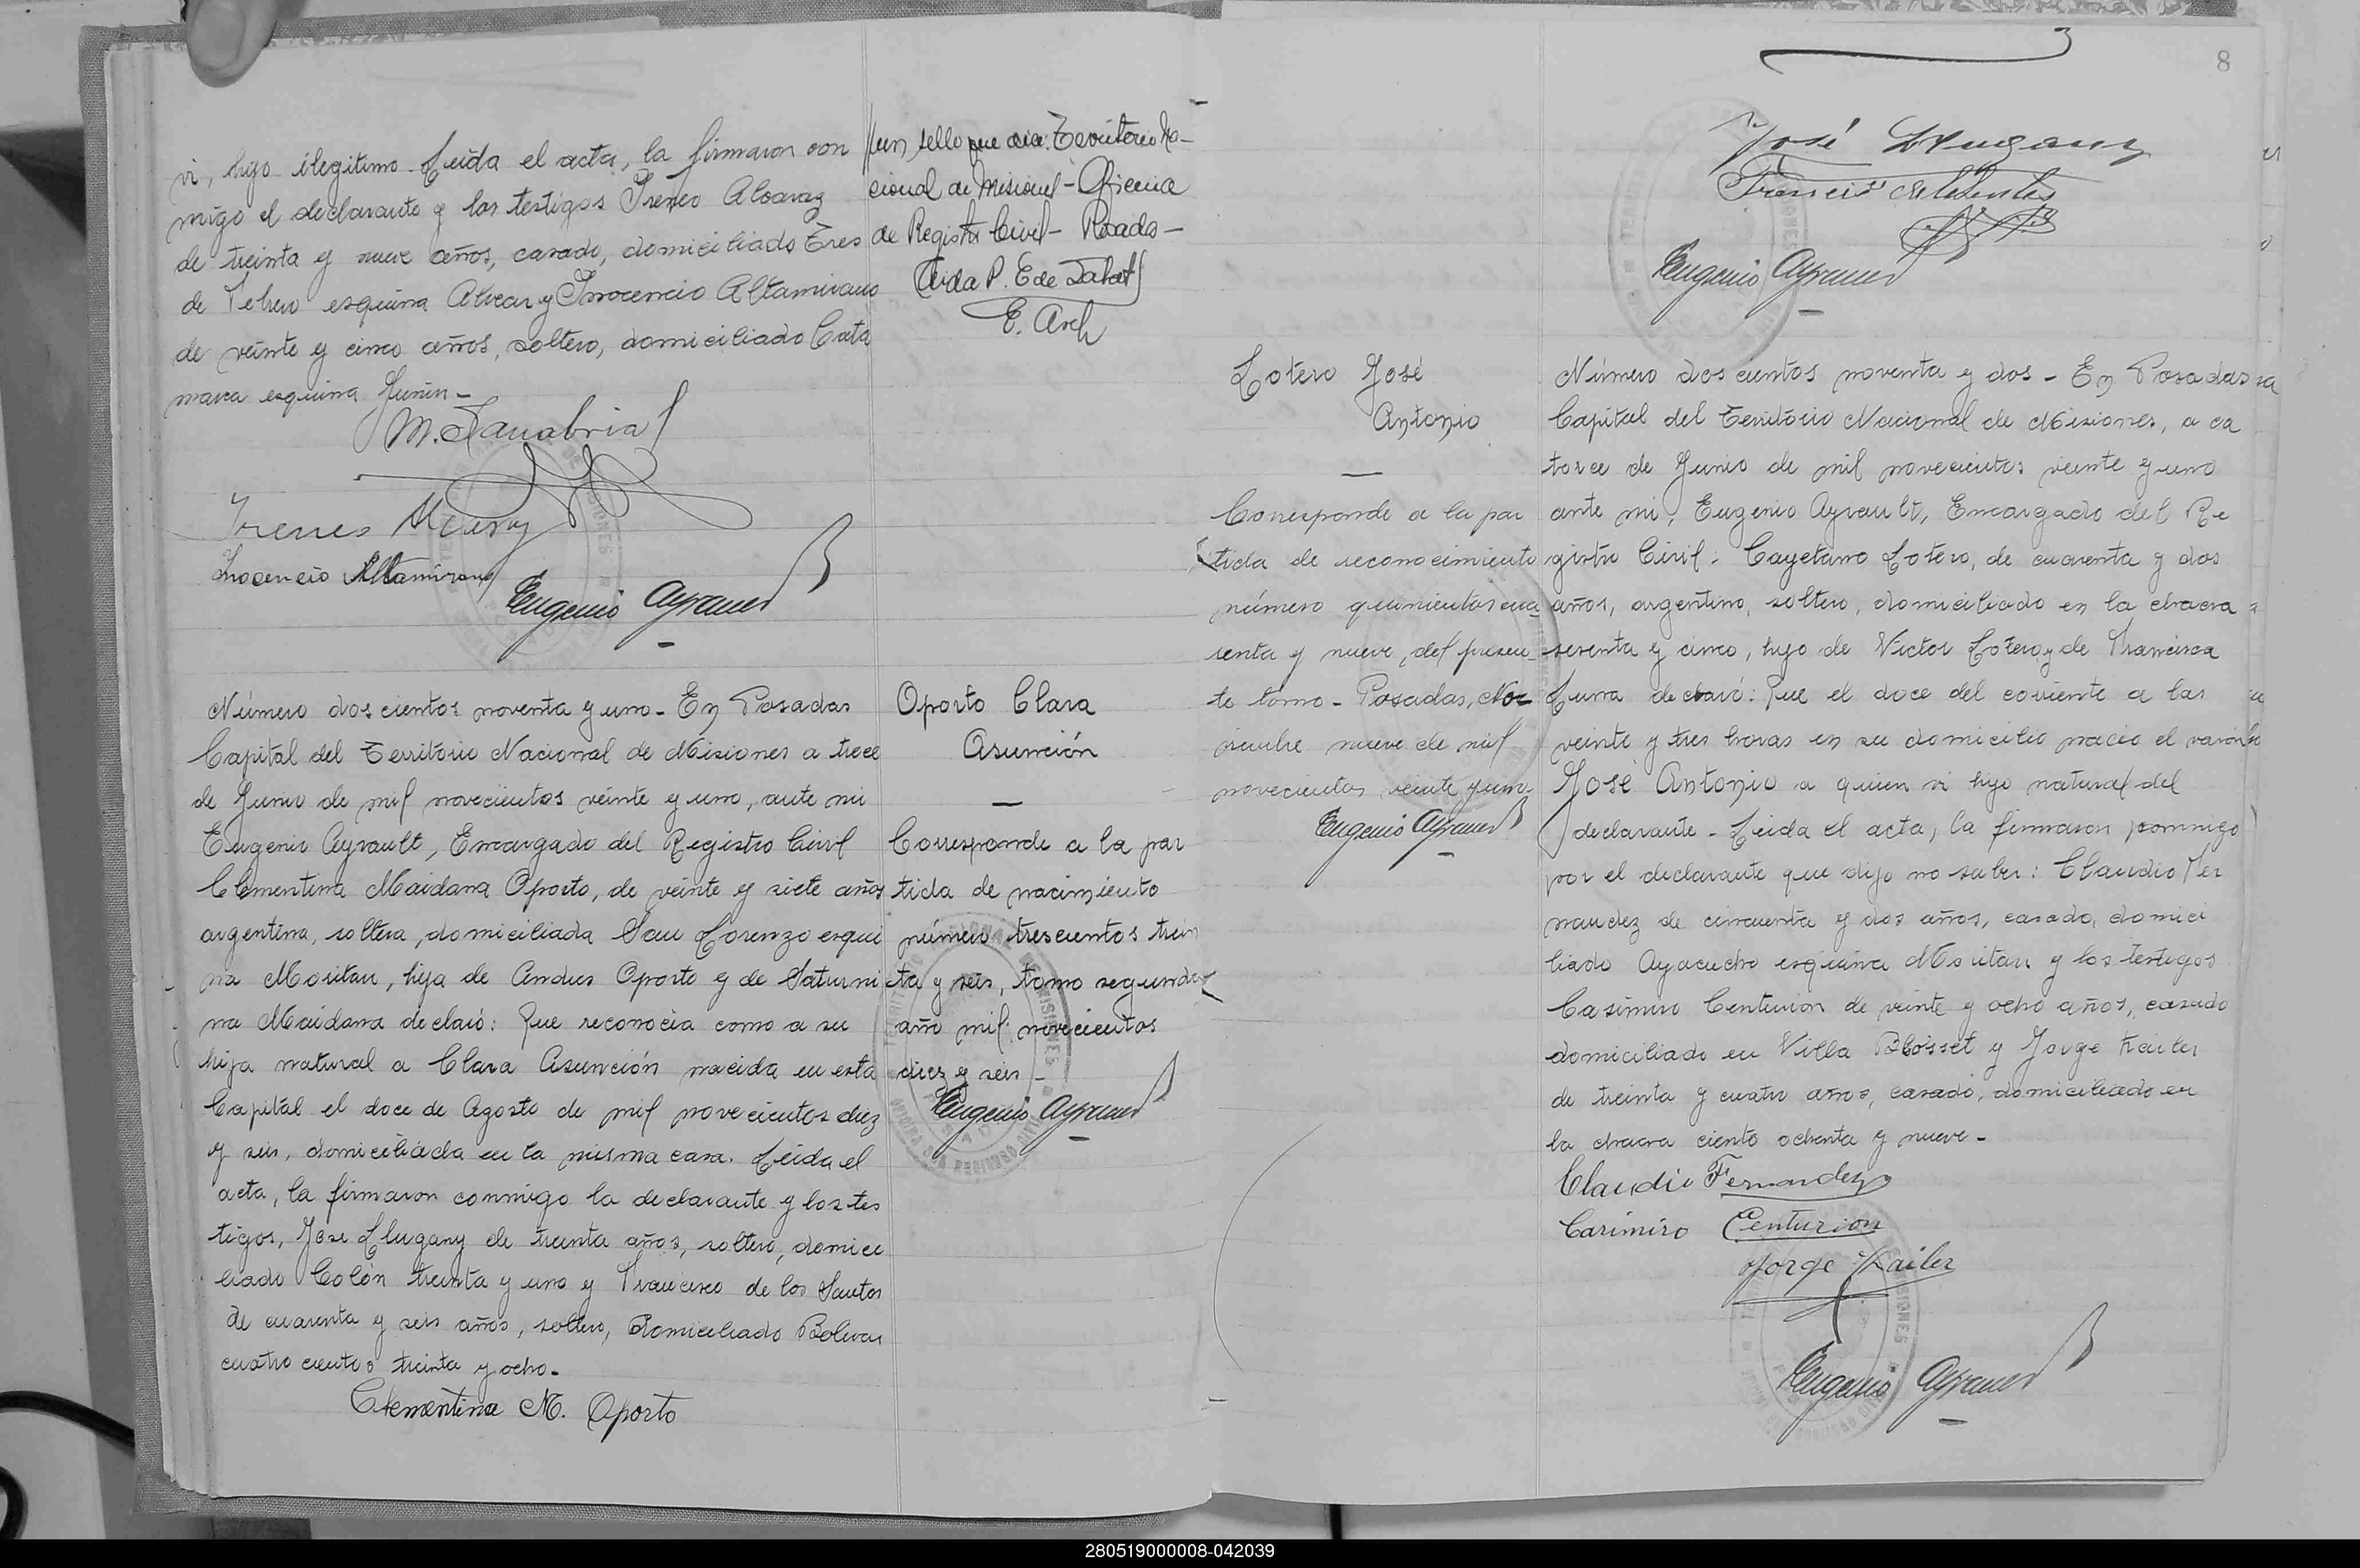 vi, hijo ilegitimo. Leida el acta, la firmaron con
migo el declarante y los testigos Ireneo Alcaraz
de treinta y nueve años, casado, domiciliado Tres
de Febrero esquina Alvear y Inocencio Altamirano
de veinte y cinco años, soltero, domiciliado Cata
marca esquina Junin -
M. Sanabria
Ireneo Alcaraz
Inocencio Altamirano
Eugenio Ayrault
un sello que dice: Territorio Na-
cional de Misiones - Oficina
de Registro Civil - Posadas -
Aida P. E de
E.
Número doscientos noventa y uno - En Posadas
Capital del Territorio Nacional de Misiones a trece
de Junio de mil novecientos veinte y uno, ante mi
Eugenio Ayrault, Encargado del Registro Civil
Clementina Maidana Oporto, de veinte y siete años
argentina, soltera, domiciliada San Lorenzo esqui
na Moritan, hija de Andres Oporto y de Saturni
na Maidana declaró: Que reconocía como a su
hija natural a Clara Asunción nacida en esta
Capital el doce de Agosto de mil novecientos diez
y seis, domiciliada en la misma casa. Leida el
acta, la firmaron conmigo la declarante y los tes
tigos, Jose Llugany de treinta años, soltero, domici
liado Colón treinta y uno y Francisco de los Santos
de cuarenta y seis años, soltero, domiciliado Bolivar
cuatro cientos treinta y ocho -
Clementina M. Oporto
Oporto Clara
Asunción
Corresponde a la par
tida de nacimiento
número trescientos trein
ta y seis, tomo segundo
año mil novecientos
diez y seis -
Eugenio Ayrault
8
José Llugany
Francisco de los Santos
Eugenio Ayrault
Lotero José
Antonio
Corresponde a la par
tida de reconocimiento
número quinientos cua
renta y nueve, del presen-
te tomo - Posadas, No-
viembre nueve de mil
novecientos veinte y uno.
Eugenio Ayrault
Número doscientos noventa y dos - En Posadas
Capital del Territorio Nacional de Misiones, a ca
torce de Junio de mil novecientos veinte y uno
ante mi, Eugenio Ayrault, Encargado del Re
gistro Civil: Cayetano Lotero, de cuarenta y dos
años, argentino, soltero, domiciliado en la chacra
sesenta y cinco, hijo de Victor Lotero y de Francisca
Luna declaró: Que el doce del corriente a las
veinte y tres horas en su domicilio nació el varón
José Antonio a quien vi hijo natural del
declarante - Leida el acta, la firmaron conmigo
por el declarante que dijo no saber: Claudio Fer
nandez de cincuenta y dos años, casado, domici
liado Ayacucho esquina Moritan y los testigos
Casimiro Centurion de veinte y ocho años, casado
domiciliado en Villa Blosset y Jorge Kailer
de treinta y cuatro años, casado, domiciliado en
la chacra ciento ochenta y nueve -
Claudio Fernandez
Casimiro Centurion
Jorge Kailer
Eugenio Ayrault
280519000008-042039